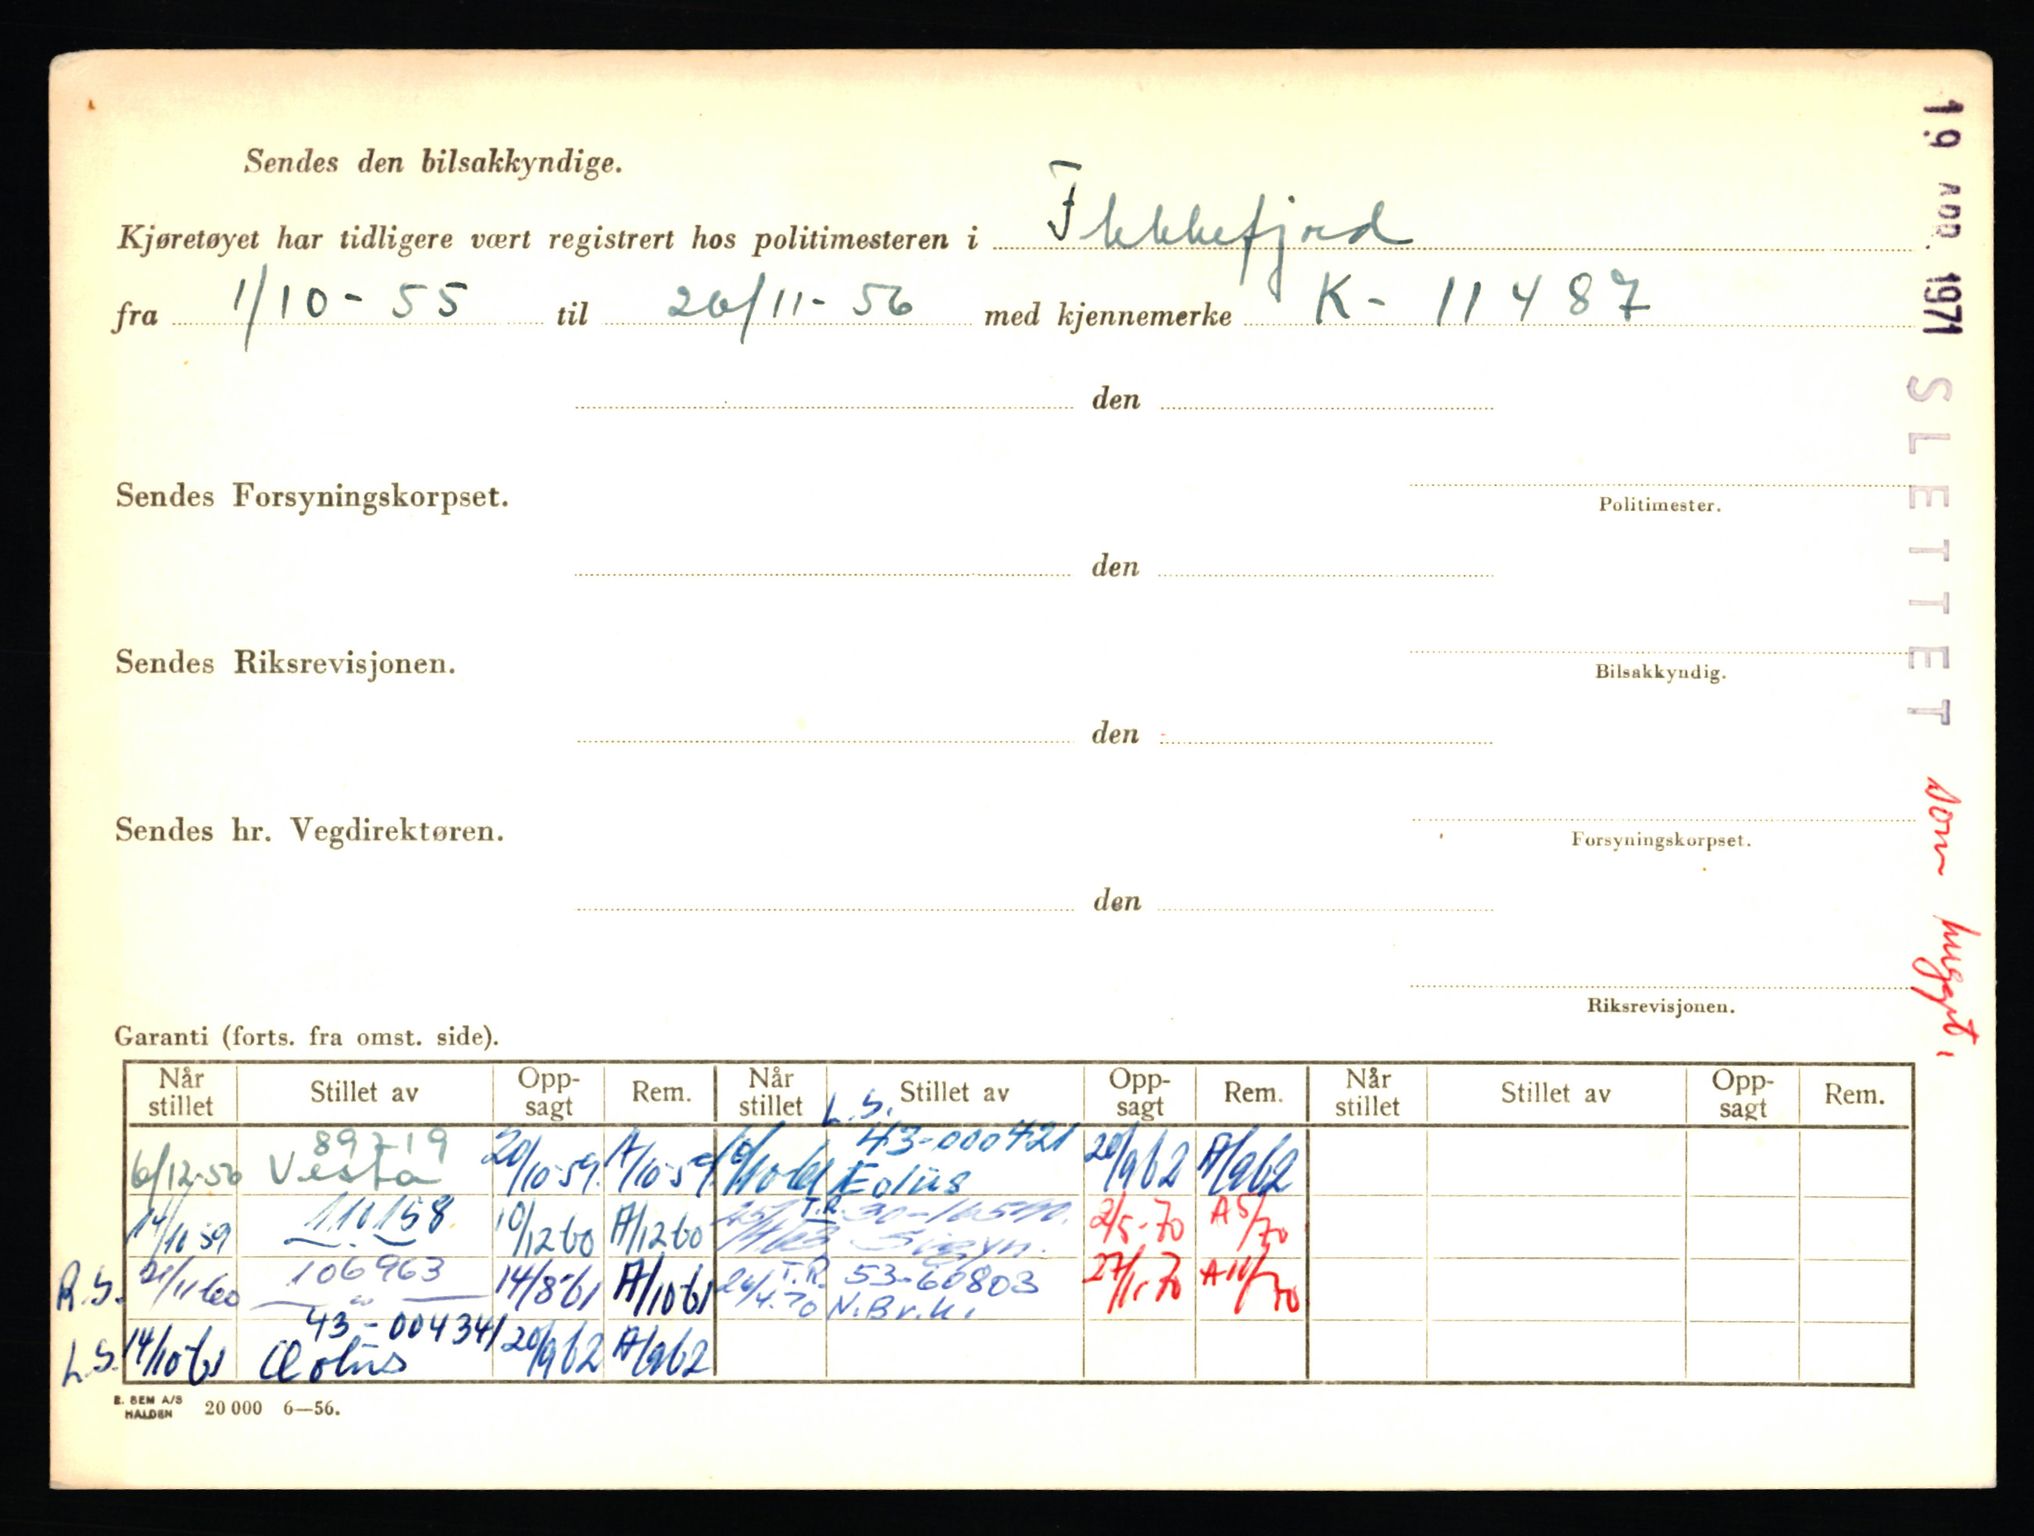 Sendes den bilsakkyndige.
Kjøretøyet har tidligere vært registrert hos politimesteren i Flekkefjord
fra 1/10-55 til 26/11-56 med kjennemerke K-11487
den
Sendes Forsyningskorpset.
Politimester.
den
Sendes Riksrevisjonen.
Bilsakkyndig.
den
Sendes hr. Vegdirektøren.
Forsyningskorpset.
den
Riksrevisjonen.
19 APR. 1971 SLETTET som hugget.
Garanti (forts. fra omst. side).
Når stillet Stillet av Opp-sagt Rem. Når stillet Stillet av Opp-sagt Rem. Når stillet Stillet av Opp-sagt Rem.
L.S.
6/12-56 89719 Vesta 20/10-59. A/10-59 43-000421 Eolus 20/9 62 A/9 62
14/10 59 110158 10/12 60 A/12 60 T.R. Sigyn. 2/5-70 A5/70
R.S. 21/11 60 106963 14/8-61 A/10-61 T.R. 53-60803 N.Br.k. A11/70
L.S. 14/10-61 43-004341 Æolus 20/9 62 A/9 62
E. SEM A/S HALDEN 20 000 6—56.